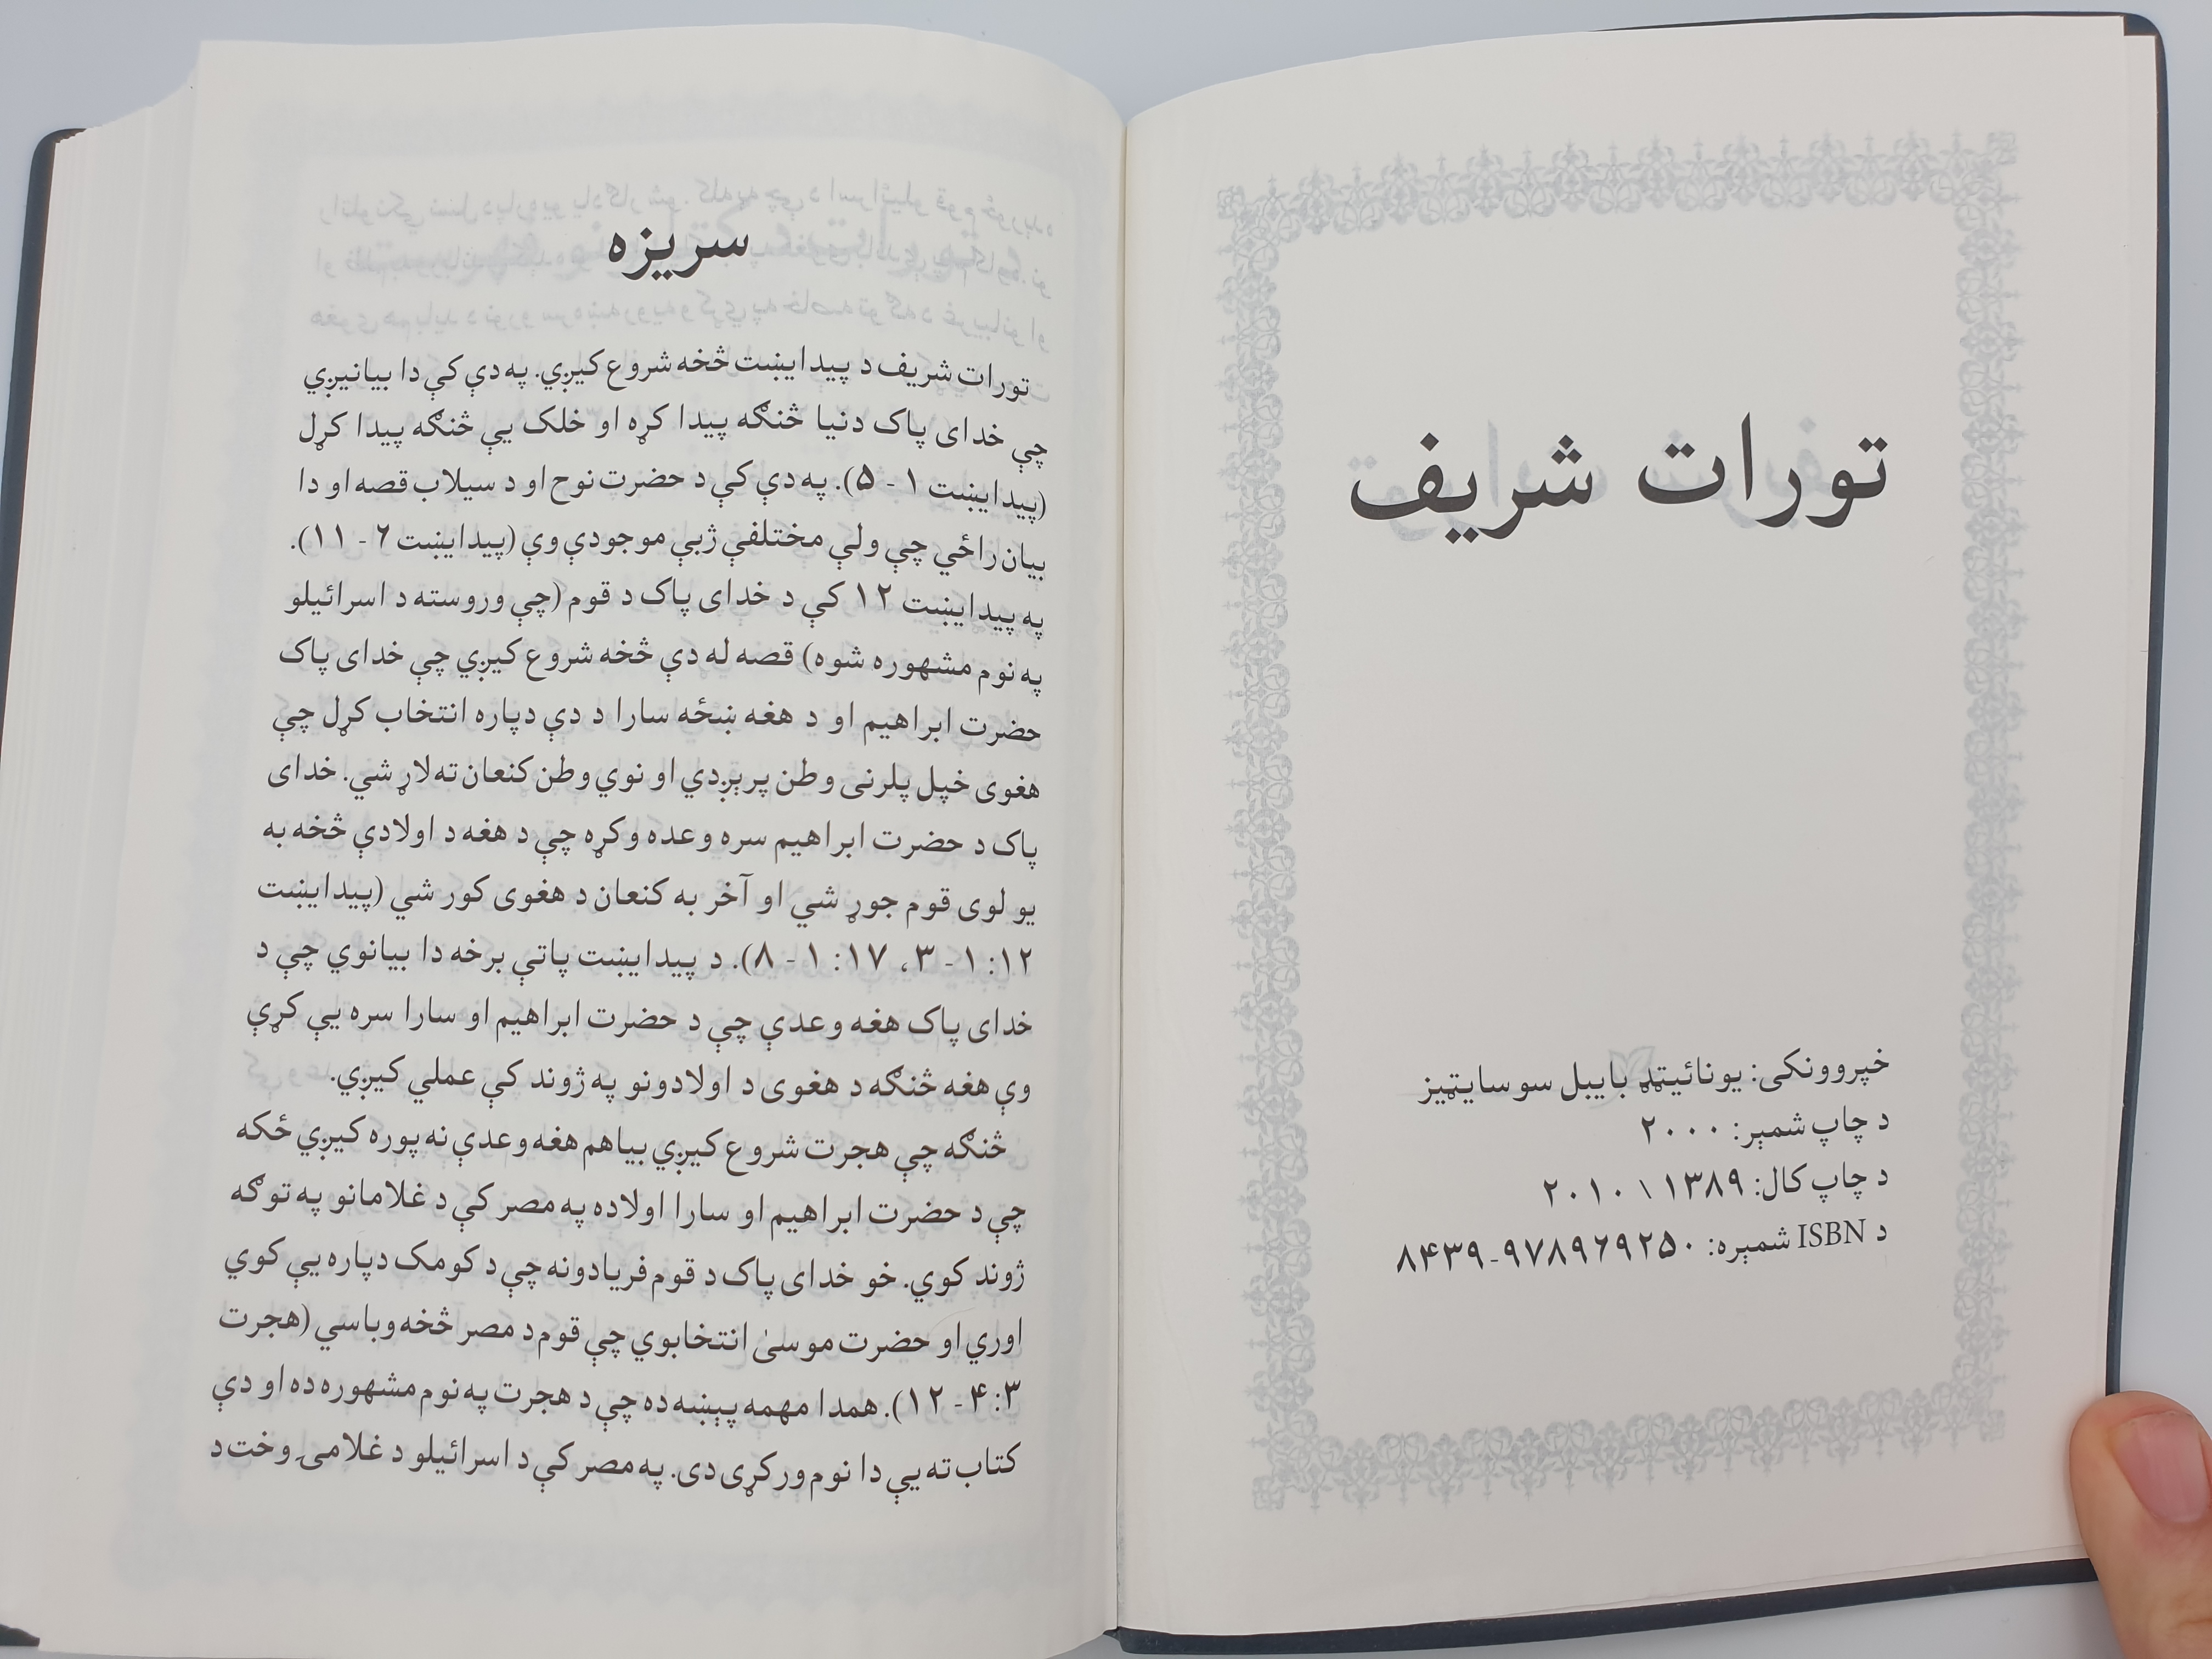 تورات شريف
خپروونکی: يونائيټډ بايبل سوسايټيز
د چاپ شمېر: ۲۰۰۰
د چاپ کال: ۱۳۸۹ \ ۲۰۱۰
د ISBN شمېره: ۹۷۸۹۶۹۲۵۰-۸۴۳۹
سريزه
تورات شريف د پيدايښت څخه شروع کيږي. په دې کې دا بيانيږي
چې خدای پاک دنيا څنګه پيدا کړه او خلک يې څنګه پيدا کړل
(پيدايښت ۱ - ۵). په دې کې د حضرت نوح او د سيلاب قصه او دا
بيان راځي چې ولې مختلفې ژبې موجودې وې (پيدايښت ۶ - ۱۱).
په پيدايښت ۱۲ کې د خدای پاک د قوم (چې وروسته د اسرائيلو
په نوم مشهوره شوه) قصه له دې څخه شروع کيږي چې خدای پاک
حضرت ابراهيم او د هغه ښځه سارا د دې دپاره انتخاب کړل چې
هغوی خپل پلرنی وطن پرېږدي او نوي وطن کنعان ته لاړ شي. خدای
پاک د حضرت ابراهيم سره وعده وکړه چې د هغه د اولادې څخه به
يو لوی قوم جوړ شي او آخر به کنعان د هغوی کور شي (پيدايښت
۱۲: ۱ - ۳، ۱۷: ۱ - ۸). د پيدايښت پاتې برخه دا بيانوي چې د
خدای پاک هغه وعدې چې د حضرت ابراهيم او سارا سره يې کړې
وې هغه څنګه د هغوی د اولادونو په ژوند کې عملي کيږي.
څنګه چې هجرت شروع کيږي بياهم هغه وعدې نه پوره کيږي ځکه
چې د حضرت ابراهيم او سارا اولاده په مصر کې د غلامانو په توګه
ژوند کوي. خو خدای پاک د قوم فريادونه چې د کومک دپاره يې کوي
اوري او حضرت موسیٰ انتخابوي چې قوم د مصر څخه وباسي (هجرت
۳: ۴ - ۱۲). همدا مهمه پېښه ده چې د هجرت په نوم مشهوره ده او دې
کتاب ته يې دا نوم ورکړی دی. په مصر کې د اسرائيلو د غلامۍ وخت د